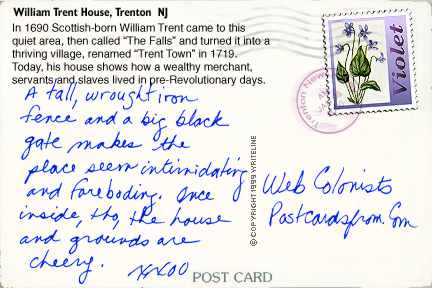 William Trent House, Trenton NJ
In 1690 Scottish-born William Trent came to this
quiet area, then called "The Falls" and turned it into a
thriving village, renamed "Trent Town" in 1719.
Today, his house shows how a wealthy merchant,
servants and slaves lived in pre-Revolutionary days.
A tall, wrought iron
fence and a big black
gate makes the
place seem intimidating
and foreboding. Once
inside, tho, the house
and grounds are
cheery.
XOXOO
Violet
Trenton New
© COPYRIGHT 1999 WRITELINE
Web Colonists
Postcardsfrom.Com
POST CARD